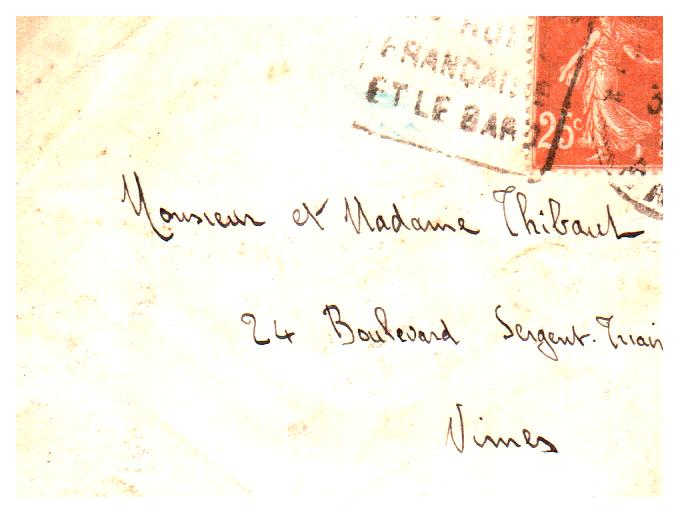 FRANÇAISE
ET LE BAR
25c
Monsieur et Madame Thibaut
24 Boulevard Sergent-Triaire
Nîmes